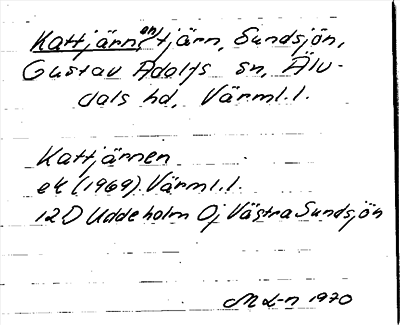 Kattjärnen, tjärn, Sundsjön,
Gustav Adolfs sn, Älv-
dals hd, Värml.l.
Kattjärnen
ek (1969) Värml.l.
12D Uddeholm 0j Västra Sundsjön
M L-n 1970